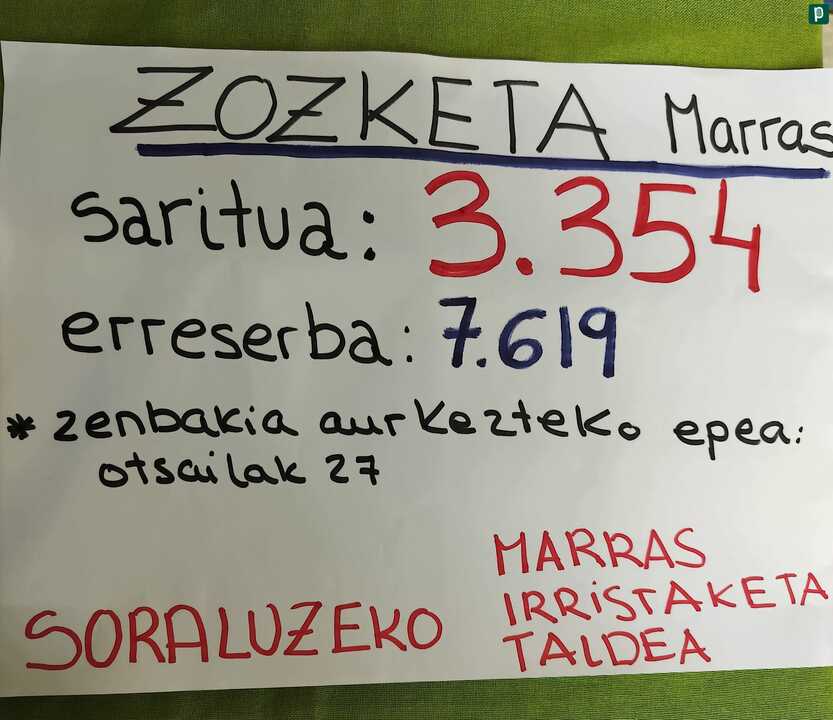 ZOZKETA Marras
saritua: 3.354
erreserba: 7.619
* zenbakia aurkezteko epea:
otsailak 27
SORALUZEKO
MARRAS
IRRiSTAKETA
TALDEA